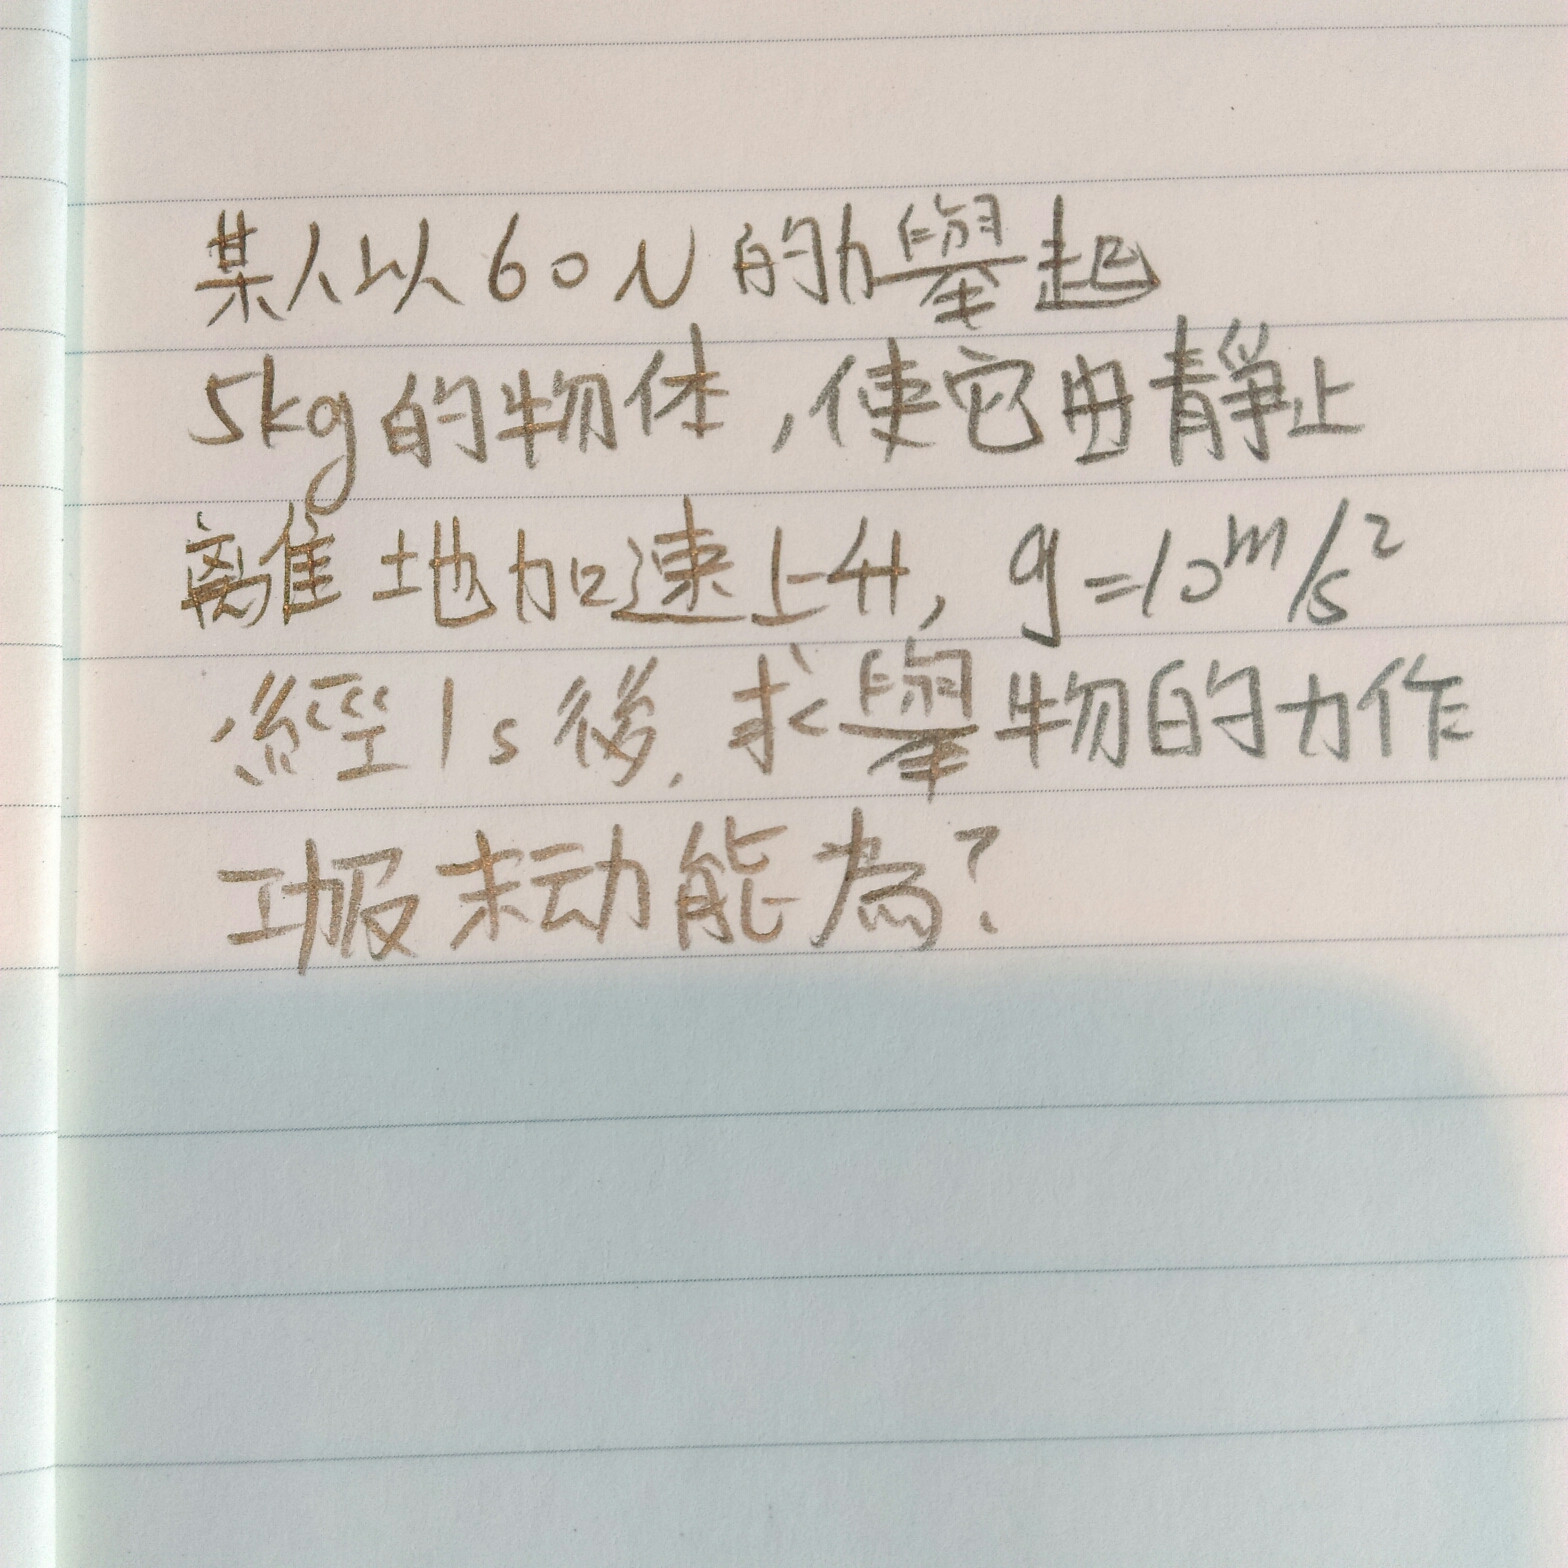 某人以60N的力舉起
5kg的物体,使它由靜止
離地加速上升, g=10m/s²
經1s後,求舉物的力作
功及末动能為?